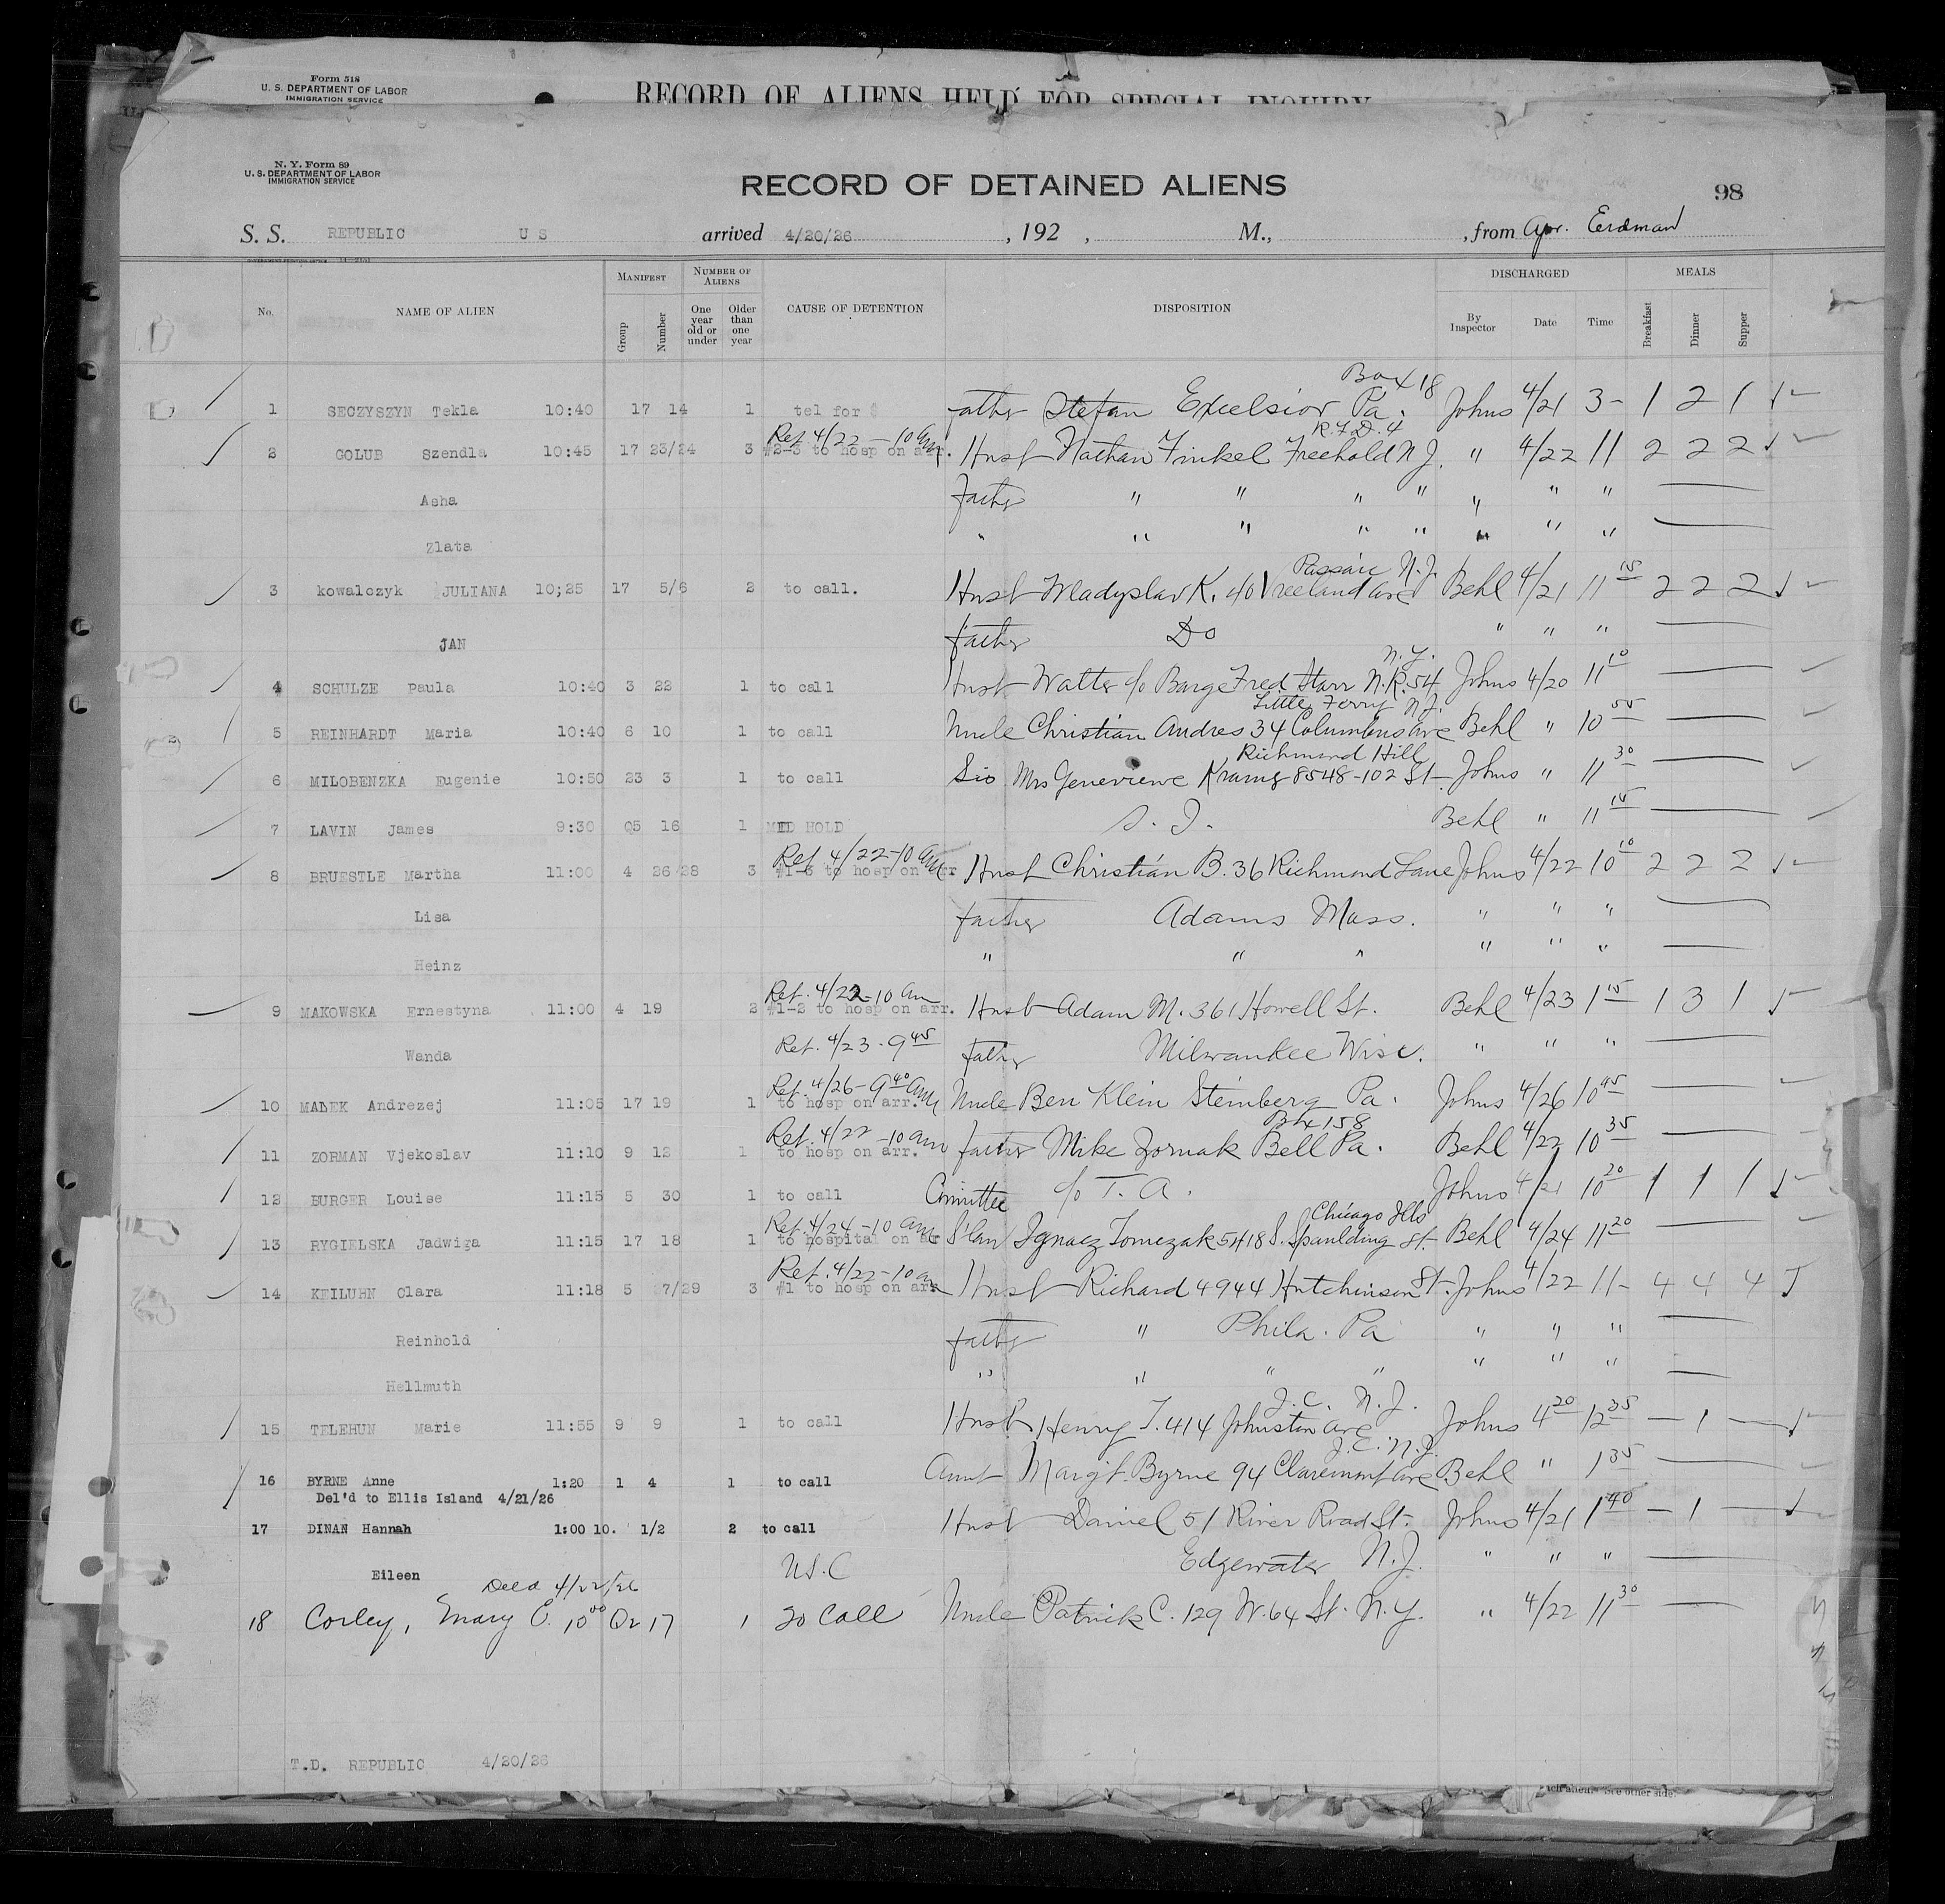 Form 518
U. S. DEPARTMENT OF LABOR
IMMIGRATION SERVICE
RECORD OF ALIENS HELD FOR SPECIAL INQUIRY
N. Y. Form 89
U. S. DEPARTMENT OF LABOR
IMMIGRATION SERVICE
RECORD OF DETAINED ALIENS
98
S. S. REPUBLIC U S arrived 4/20/26 , 192 , M., , from Apr. Erdman
No. NAME OF ALIEN MANIFEST Group Number NUMBER OF ALIENS One year old or under Older than one year CAUSE OF DETENTION DISPOSITION DISCHARGED By Inspector Date Time MEALS Breakfast Dinner Supper
Box 18
1 SECZYSZYN Tekla 10:40 17 14 1 tel for $ father Stefan Excelsior Pa. Johns 4/21 3- 1 2 1
Ret 4/22 - 10 am R.F.D. 4
2 GOLUB Szendla 10:45 17 23/24 3 #2-3 to hosp on arr. Husb Nathan Finkel Freehold N J. " 4/22 11 2 2 2
Asha father " " " " " " "
Zlata " " " " " " " "
Passaic N.J.
3 kowalczyk JULIANA 10;25 17 5/6 2 to call. Husb Wladyslav K. 40 Vreeland ave Behl 4/21 11 15 2 2 2
JAN father Do " " "
N.Y.
4 SCHULZE Paula 10:40 3 22 1 to call Husb Walter c/o Barge Fred Starr N.R. 54 Johns 4/20 11 10
Little Ferry N.J.
5 REINHARDT Maria 10:40 6 10 1 to call Uncle Christian Andres 34 Columbus ave Behl " 10 55
Richmond Hill
6 MILOBENZKA Eugenie 10:50 23 3 1 to call Sis Mrs Genevieve 8548-102 St Johns " 11 30
7 LAVIN James 9:30 05 16 1 MED HOLD S. I. Behl " 11 15
Ret. 4/22-10 am
8 BRUESTLE Martha 11:00 4 26 28 3 #1-3 to hosp on arr Husb Christian B. 36 Richmond Lane Johns 4/22 10 10 2 2 2
Lisa father Adams Mass. " " "
Heinz " " " " " "
Ret. 4/22-10 am
9 MAKOWSKA Ernestyna 11:00 4 19 2 #1-2 to hosp on arr. Husb Adam M. 361 Howell St. Behl 4/23 1 15 1 3 1
Wanda Ret. 4/23 - 9 45 father Milwaukee Wisc. " " "
Ret. 4/26-9 40 am
10 MADEK Andrezej 11:05 17 19 1 to hosp on arr. Uncle Ben Klein Steinberg Pa. Johns 4/26 10 45
Ret. 4/22 -10 am Box 158
11 ZORMAN Vjekoslav 11:10 9 12 1 to hosp on arr. father Mike Zornak Bell Pa. Behl 4/22 10 35
12 BURGER Louise 11:15 5 30 1 to call Committee c/o T. A. Johns 4/21 10 20 1 1 1
Ret. 4/24-10 am Chicago Ills
13 RYGIELSKA Jadwiga 11:15 17 18 1 to hospital on arr Ignacz Tomczak 5418 S. Spaulding St. Behl 4/24 11 20
Ret. 4/22-10 am
14 KEILUHN Clara 11:18 5 27/29 3 #1 to hosp on arr Husb Richard 4944 Hutchinson St. Johns 4/22 11- 4 4 4
Reinhold father " Phila. Pa " " "
Hellmuth " " " " " " "
J.C. N.J.
15 TELEHUN Marie 11:55 9 9 1 to call Husb Henry T. 414 Johnston ave Johns 4 20 12 35 - 1 -
J.C. N.J.
16 BYRNE Anne 1:20 1 4 1 to call Aunt Margt. Byrne 94 Claremont ave Behl " 1 35
Del'd to Ellis Island 4/21/26
17 DINAN Hannah 1:00 10. 1/2 2 to call Husb Daniel 51 River Road St. Johns 4/21 1 40 - 1 -
Eileen U.S.C Edgewater N.J. " " "
Deld 4/22/26
18 Corley, Mary C. 10 00 Qr 17 1 To Call Uncle Patrick C. 129 W. 64 St. N.Y. " 4/22 11 30
T.D. REPUBLIC 4/20/26
See other side.